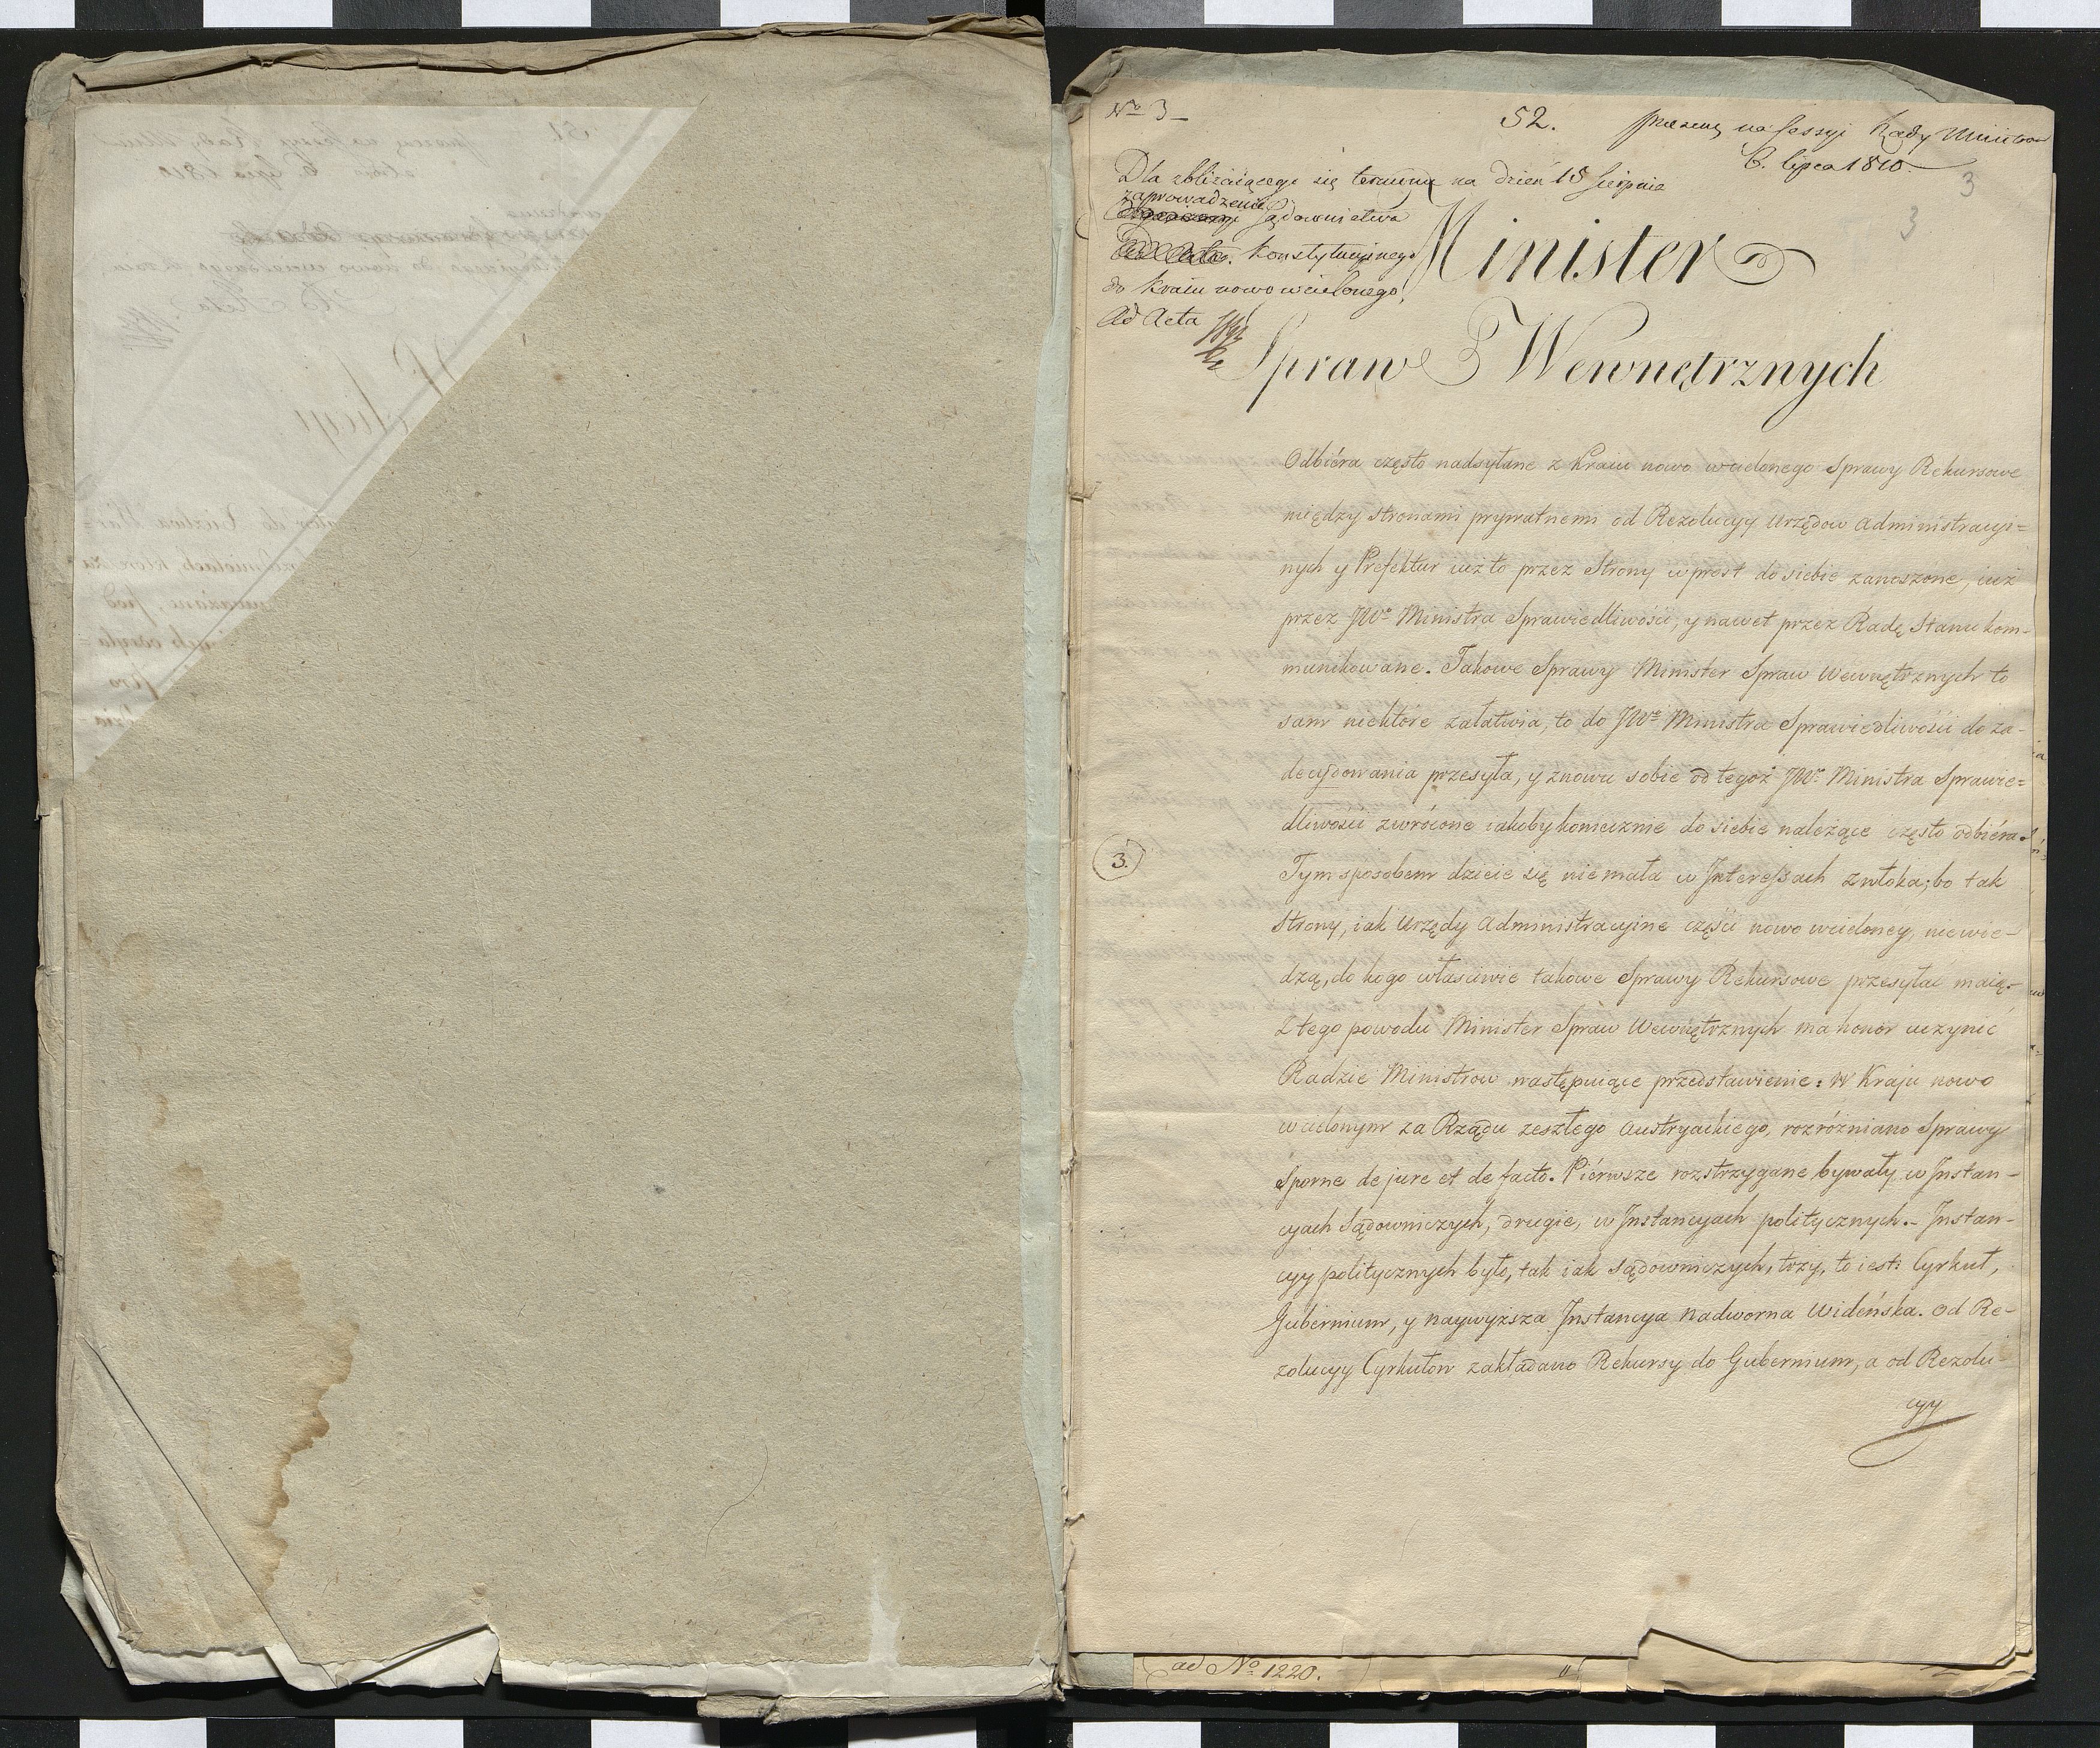 No 3
52. na Sessyi Rady Ministrow
6. lipca 1810.
3
3
Dla zbliżaiącego się terminu na dzień 15 Sierpnia
zaprowadzenia
Sądownictwa
Konstytucyinego
do Kraiu nowo wcielonego,
Ad Acta
Minister
Spraw Wewnętrznych
Odbiéra często nadsyłane z Kraiu nowo wcielonego Sprawy Rekursowe
między stronami prywatnemi od Rezolucyy Urzędow Administracyi=
nych y Prefektur iuż to przez Strony wprost do siebie zanoszone, iuż
przez JWo Ministra Sprawiedliwości, y nawet przez Radę Stanu kom-
munikowane. Takowe Sprawy Minister Spraw Wewnętrznych to
sam niektóre załatwia, to do JWo Ministra Sprawiedliwości do za-
decydowania przesyła, y znowu sobie od tegoż JWo Ministra Sprawie=
dliwości zwrócone iakoby koniecznie do siebie należące często odbiéra.
3.
Tym sposobem dzieie się nie mała w Interessach zwłoka; bo tak
Strony, iak Urzędy Administracyine części nowo wcieloney, niewie-
dzą, do kogo właściwie takowe Sprawy Rekursowe przesyłać maią.
Z tego powodu Minister Spraw Wewnętrznych ma honor uczynić
Radzie Ministrow następuiące przedstawienie: W Kraju nowo
wcielonym za Rządu zeszłego Austryackiego, rozróżniano Sprawy
Sporne de jure et de facto. Piérwsze rozstrzygane bywały w Instan-
cyach Sądowniczych, drugie, w Instancyach politycznych. - Instan-
cyy politycznych było, tak iak Sądowniczych, trzy, to iest: Cyrkuł,
Gubernium, y naywyższa Instancya Nadworna Widéńska. Od Re-
zolucyy Cyrkułow zakładano Rekursy do Gubernium, a od Rezolu-
cyy
ad No 1220.